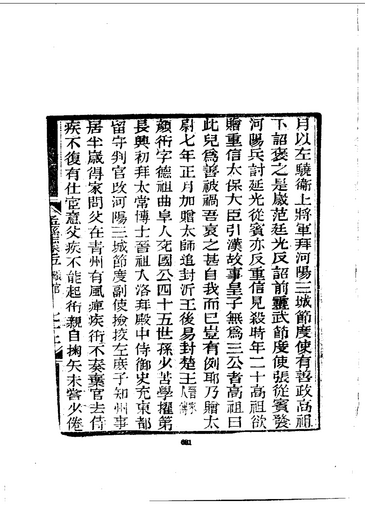 月以左驍衛上將軍拜河陽三城節度使有善政高祖
下詔褒之是歲范延光反詔前靈武節度使張從賓發
河陽兵討延光從賓亦反重信見殺時年二十高祖欲
贈重信太保大臣引漢故事皇子無為三公者高祖曰
此兒為善被禍吾哀之甚自我而已豈有例耶乃贈太
尉七年正月加贈太師追封沂王後易封楚王
顏衎字德祖曲阜人兗國公四十五世孫少苦學擢第
長興初拜太常博士晉祖入洛拜殿中侍御史充東都
留守判官改河陽三城節度副使檢校左庶子知州事
居半歲得家問父在青州有風痺疾衎不奏棄官去侍
疾不復有仕宦意父疾不能起衎親自掬矢未嘗少倦
681